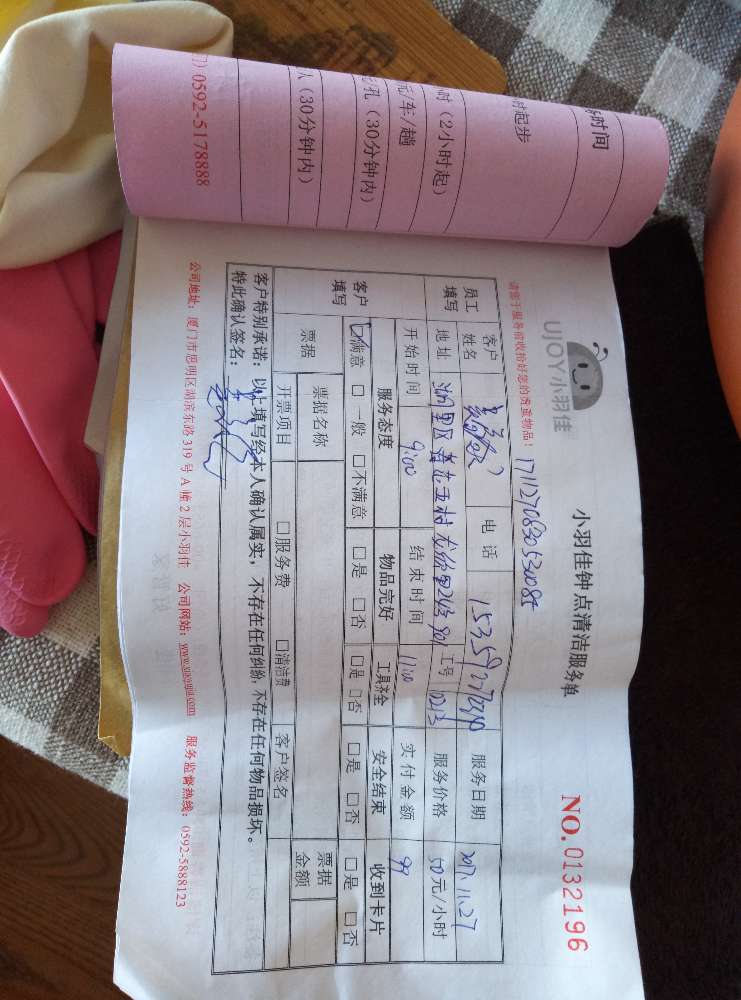 时间
时起步
时（2小时起）
元/车/趟
孔（30分钟内）
人（30分钟内）
0592-5178888
UJOY小羽佳
小羽佳钟点清洁服务单
NO.0132196
请您于服务前收拾好您的贵重物品！
员工填写
客户姓名
电话
服务日期 2017.11.27
地址
工号 10213
服务价格 50元/小时
开始时间 9:00 结束时间 11:00 实付金额 99
客户填写
服务态度 物品完好 工具齐全 安全结束 收到卡片
☑满意 □一般 □不满意 □是 □否 □是 □否 □是 □否 □是 □否
票据
票据名称
票据金额
开票项目 □服务费 □清洁费 客户签名
客户特别承诺：以上填写经本人确认属实，不存在任何纠纷，不存在任何物品损坏。
特此确认签名：
公司地址：厦门市思明区湖滨东路319号A幢2层小羽佳 公司网站：www.xiaoyujia.com 服务监督热线：0592-5888123